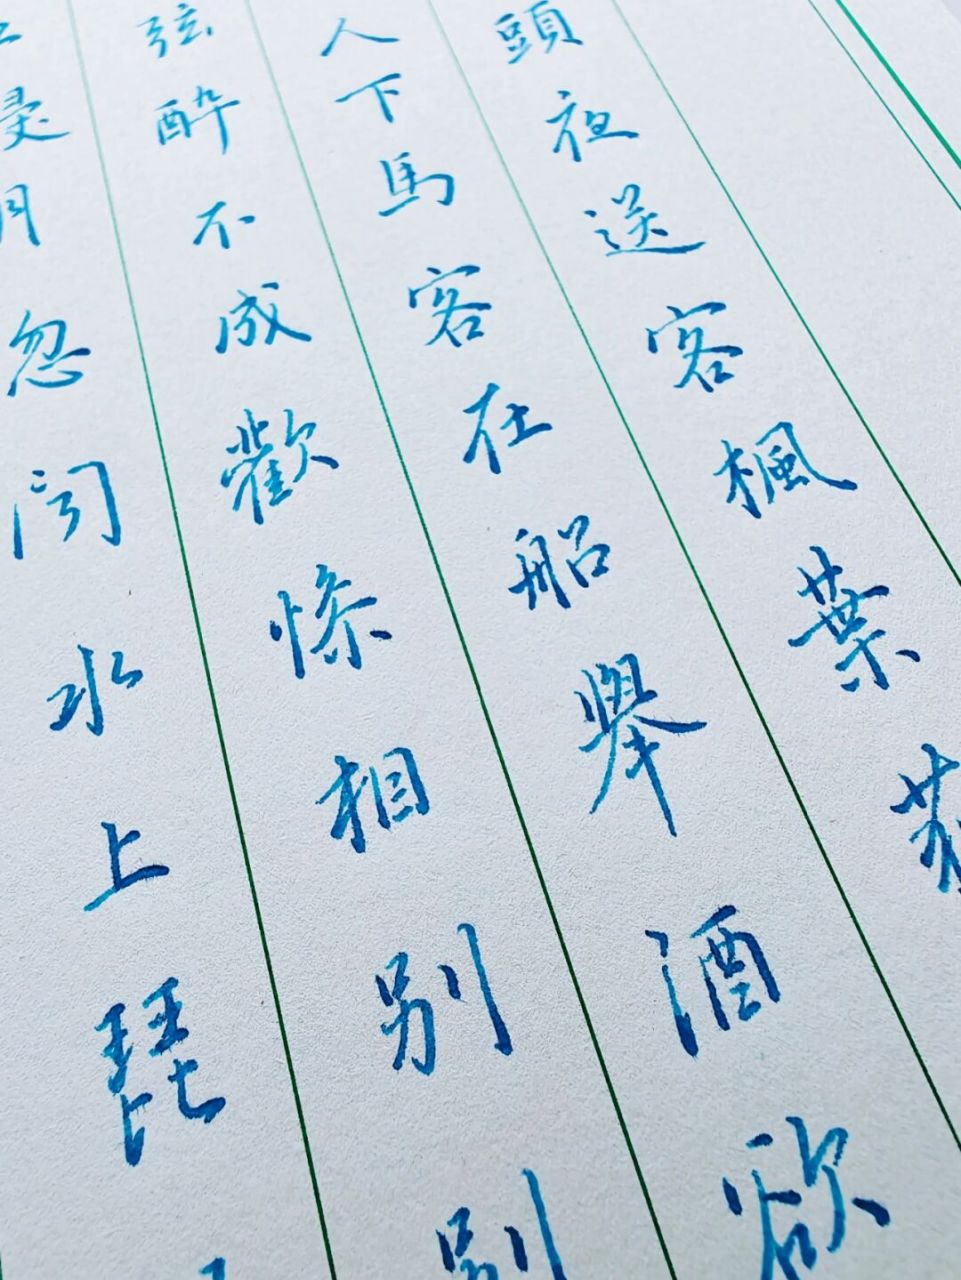 頭夜送客楓葉
人下馬客在船舉酒欲
弦醉不成歡慘相別別
江浸月忽聞水上琵